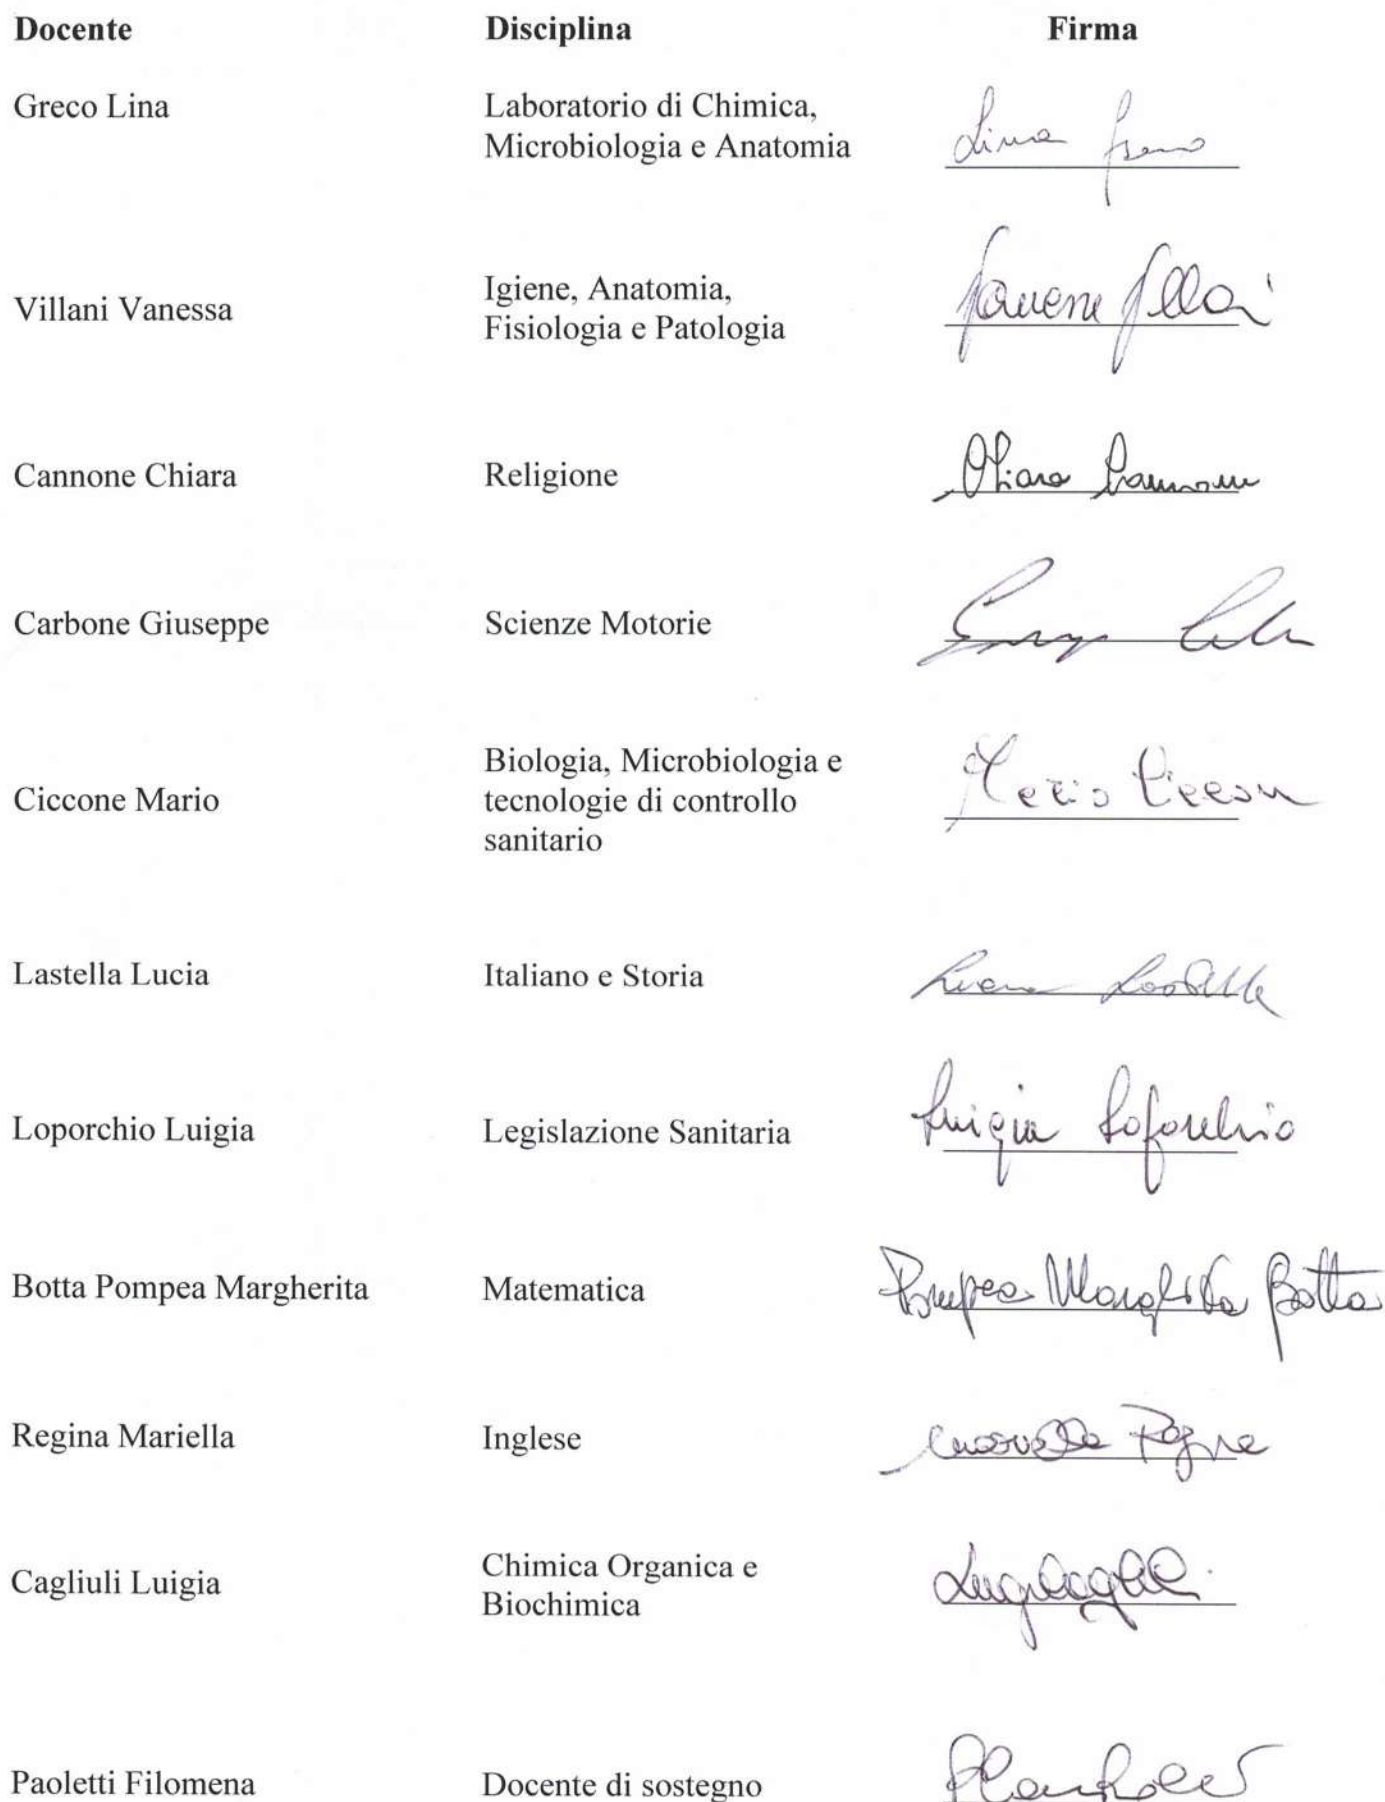 Docente Disciplina Firma
Greco Lina Laboratorio di Chimica, Lina Greco
Microbiologia e Anatomia
Villani Vanessa Igiene, Anatomia,
Fisiologia e Patologia
Cannone Chiara Religione Chiara Cannone
Carbone Giuseppe Scienze Motorie
Ciccone Mario Biologia, Microbiologia e Mario Ciccone
tecnologie di controllo
sanitario
Lastella Lucia Italiano e Storia Lucia Lastella
Loporchio Luigia Legislazione Sanitaria Luigia Loporchio
Botta Pompea Margherita Matematica Pompea Margherita Botta
Regina Mariella Inglese Mariella Regina
Cagliuli Luigia Chimica Organica e
Biochimica
Paoletti Filomena Docente di sostegno